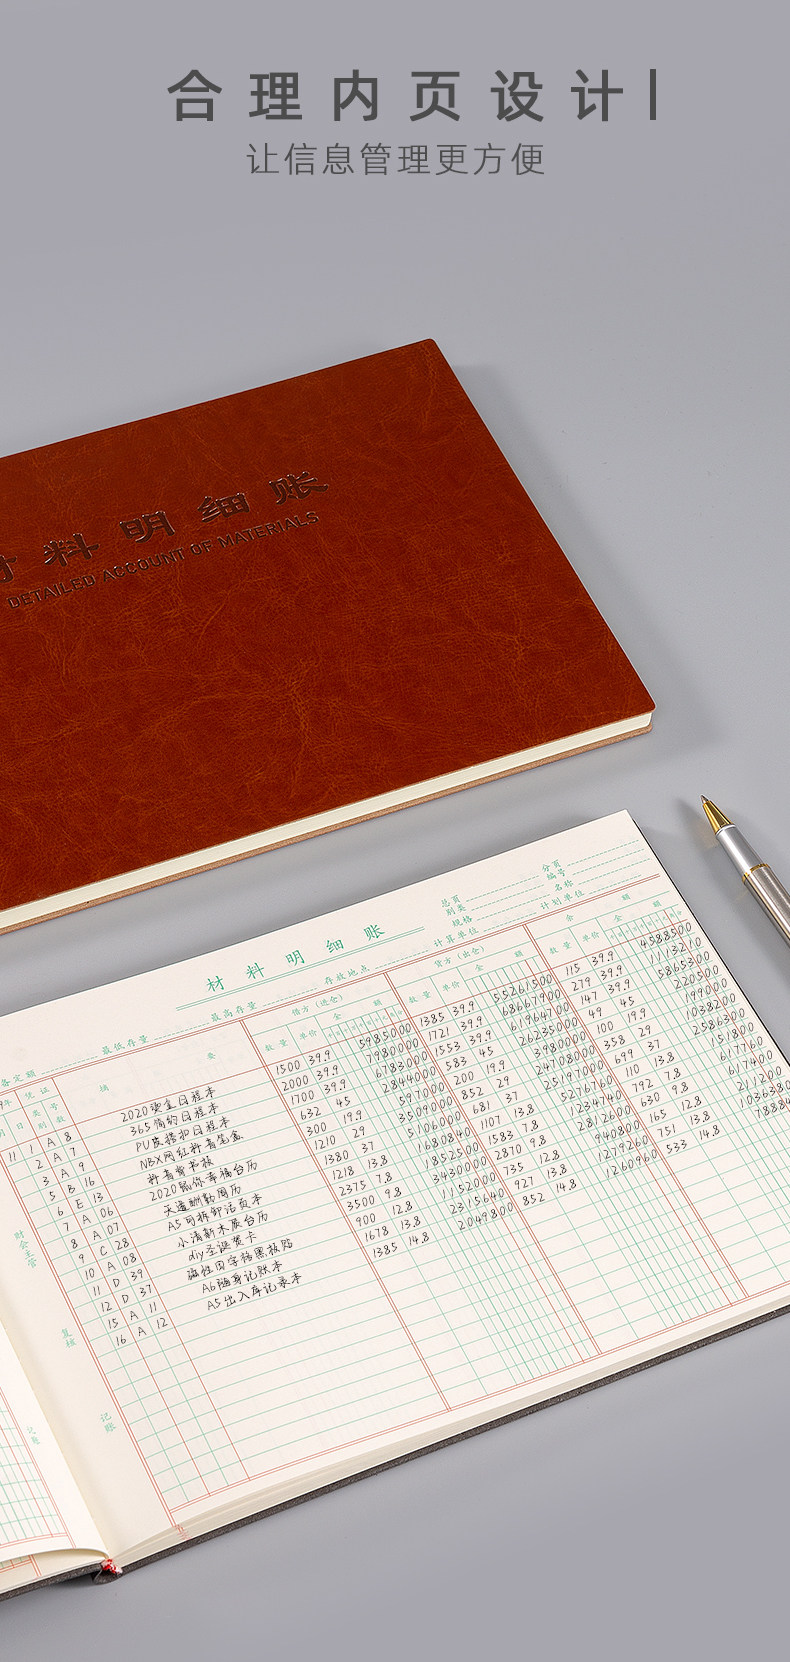 合理内页设计
让信息管理更方便
材料明细账
DETAILED ACCOUNT OF MATERIALS
材料明细账
总页 分页
别类 编号
规格 名称
最低存量 最高存量 存放地点 计算单位 计划单位
借方（进仓） 贷方（出仓） 余
年 凭证 摘要 数量 单价 金额 数量 单价 金额 数量 单价 金额
月 日 类别 号数
11 1 A 8 2020烫金日程本 1500 39.9 5985000 1385 39.9 55261500 115 39.9 4588500
2 A 7 365简约日程本 2000 39.9 7980000 1721 39.9 68667900 279 39.9 1113210
3 A 9 PU皮搭扣日程本 1700 39.9 6783000 1553 39.9 61964700 147 39.9 5865300
5 B 16 NBX网红抖音笔盒 632 45 2844000 583 45 26235000 49 45 220500
6 E 13 抖音背书板 300 19.9 597000 200 19.9 3980000 100 19.9 199000
7 A 06 2020鼠你幸福台历 1210 29 3509000 852 29 24708000 358 29 1038200
8 A 07 天道酬勤周历 1380 37 5106000 681 37 25197000 699 37 2586300
9 C 28 A5可拆卸活页本 1218 13.8 1680840 1107 13.8 5276760 110 13.8 151800
10 A 08 小清新木质台历 2375 7.8 1852500 1583 7.8 1234740 792 7.8 617760
11 D 39 diy圣诞贺卡 3500 9.8 3430000 2870 9.8 2812600 630 9.8 617400
12 D 37 磁性田字格黑板贴 900 12.8 1152000 735 12.8 940800 165 12.8 211200
15 A 11 A6随身记账本 1678 13.8 2315640 927 13.8 1279260 751 13.8 1036380
16 A 12 A5出入库记录本 1385 14.8 2049800 852 14.8 1260960 533 14.8
财会主管
复核
记账